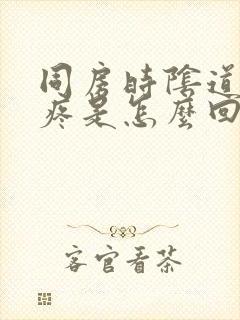 同房時陰道
疼是怎麼回
客官看茶